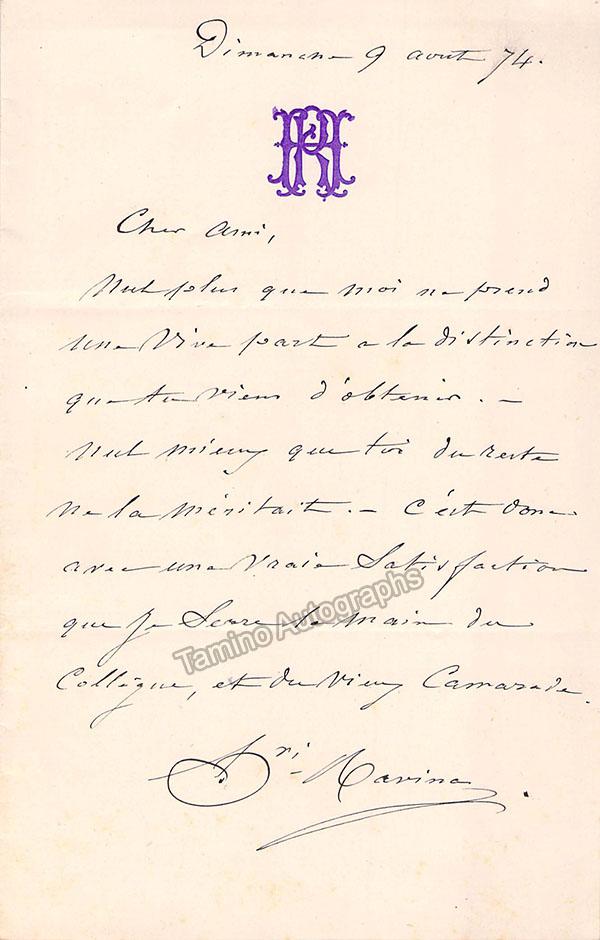 Dimanche 9 aout 74.
HR
Cher ami,
Nul plus que moi ne prend
une vive part a la distinction
que tu viens d'obtenir. —
Nul mieux que toi du reste
ne la méritait. — C'est donc
avec une vraie satisfaction
que je serre la main du
Collègue, et du vieux Camarade.
Tamino Autographs
hri Ravina